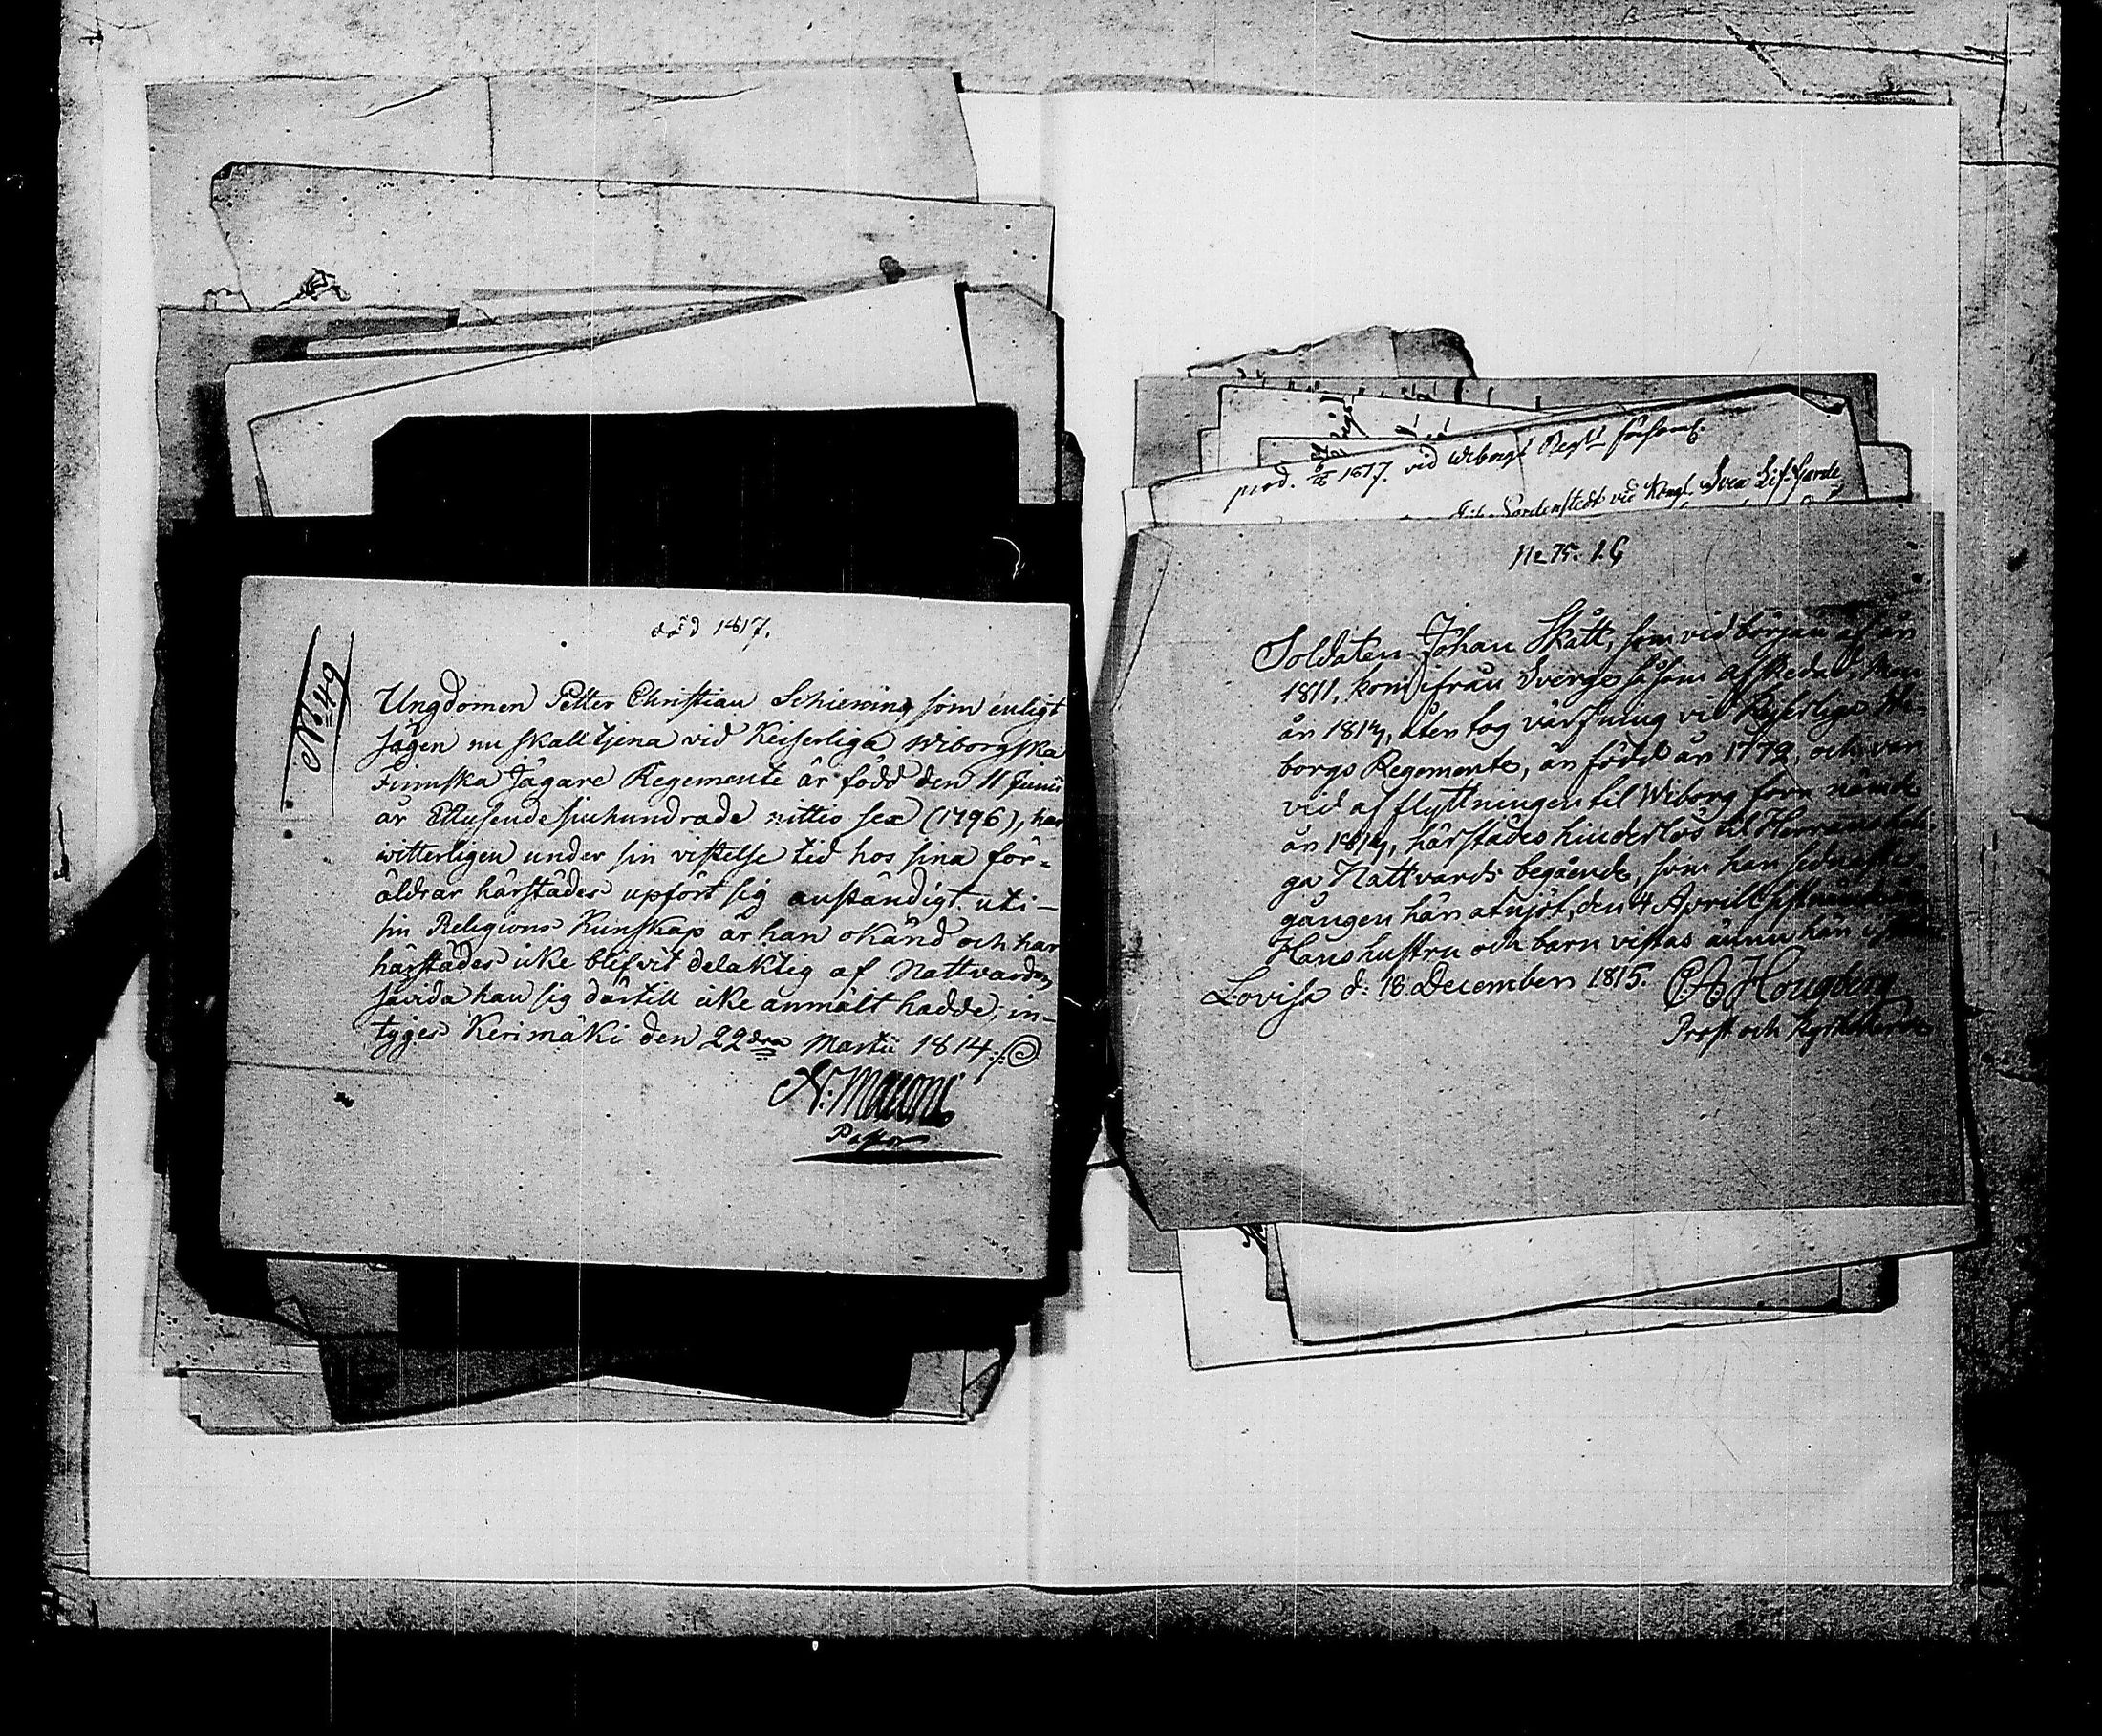 död 1817.
No 49
Ungdomen Petter Christian Schiering som enligt
sägen nu skall tjena vid Keiserliga Wiborgska
Finnska Jägare Regemente är född den 11 Junii
år Ettusende siuhundrade nittio sex (1796), har
witterligen under sin vistelse tid hos sina för-
äldrar härstädes upfört sig anständigt uti-
sin Religions Kunskap är han okänd och har
härstädes icke blifvit delaktig af Nattvarden
såvida han sig därtill icke anmält hadde, in-
tyges Kerimäki den 22dra Martii 1814.
Pastor
prod. 1817. vid Wiborgs Regts församl.
vid Kongl. Svea Lif-Garde
No 75. 1. G
Soldaten Johan Skatt, som vid början af år
1811, kom ifrån Sverge såsom afskedad, man
år 1814, åter tog värfning vid Kejserliga Wi-
borgs Regemente, är född år 1779, och var
vid afflyttningen til Wiborg förr nämde
år 1814, härstädes hinderlös til Herrans heli-
ga Nattvards begående, som han sednaste
gången här atnjöt, den 4 Aprill
Hans hustru och barn vistas ännu här
Lovisa d. 18 December 1815. Hougberg
Prost och Kyrkoherde